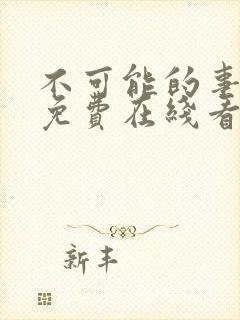 不可能的事
免費在綫看
新丰